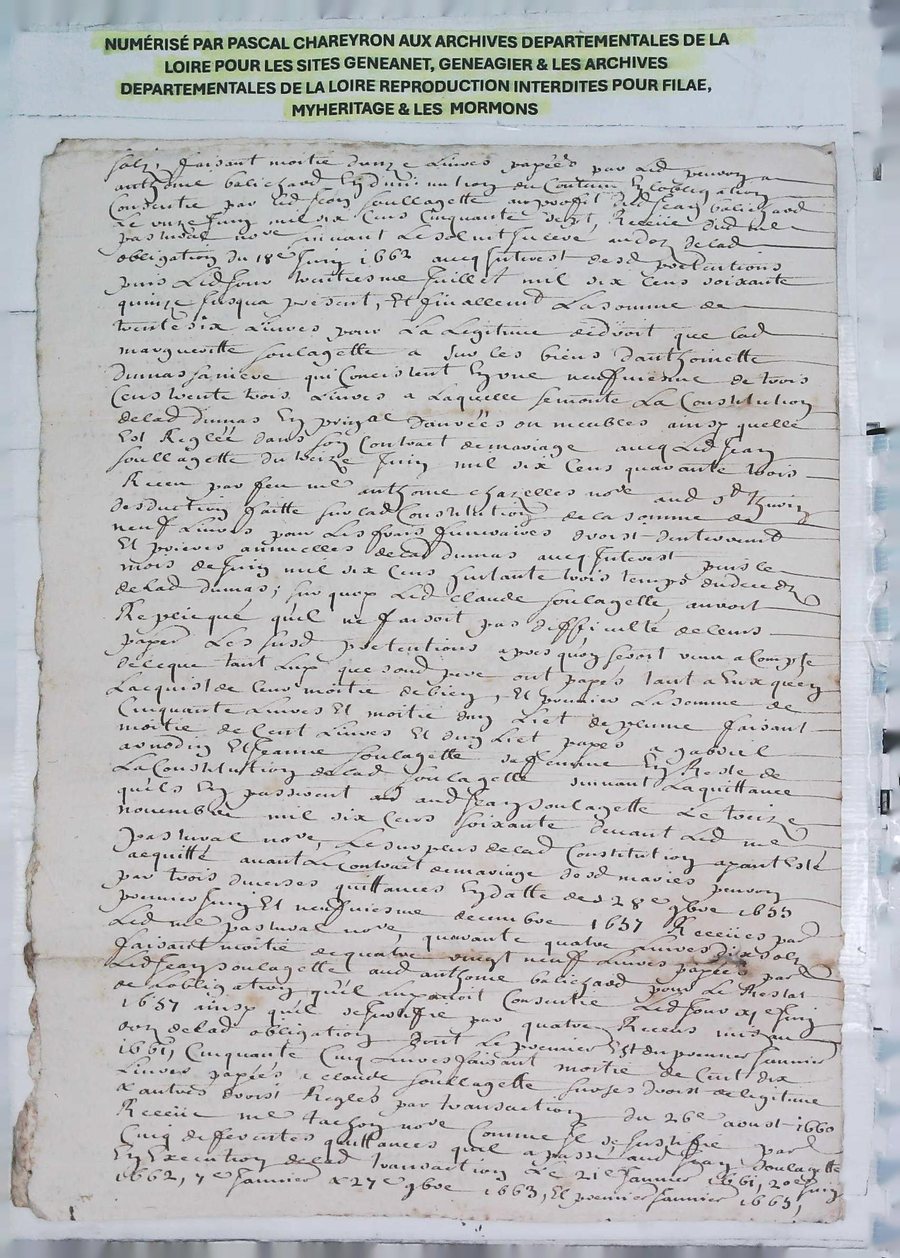 NUMÉRISÉ PAR PASCAL CHAREYRON AUX ARCHIVES DEPARTEMENTALES DE LA
LOIRE POUR LES SITES GENEANET, GENEAGIER & LES ARCHIVES
DEPARTEMENTALES DE LA LOIRE REPRODUCTION INTERDITES POUR FILAE,
MYHERITAGE & LES MORMONS
solz, faisant moitie dunze Livres payées par Led
anthoine balichard En dimi nution du Contenu En lobligation
Consentie par Led Jean soullagette au proffit dud Jean balichard
Le unze Juin mil six Cens Cinquante sept, Receüe dud me
pastural nore suivant Le solvit au doz delad
obligation du 18e Juin 1662 avecq Interest desd pretentions
puis Led Jour huitiesme Juillet mil six Cens soixante
quinze Jusqua present, Et finallemt La somme de
trente six Livres pour La Legitime de droit que lad
margueritte soulagette a sur les biens danthoinette
dumas sa mere qui Concistent En une neufviesme de trois
Cens trente trois Livres a Laquelle se monte La Constitution
delad dumas En prinpal danrées ou meubles ainsy quelle
Est Reglée dans son Contract de mariage avecq Led Jean
soullagette du treize Juin mil six Cens quarante trois
Receu par feu me anthoine chazelles nore
desduction faitte sur lad Constitution de la somme de
neuf Livres pour Les frais funeraires droist denterremt
Et prieres annuelles delad dumas avecq Interest puis le
mois de Juin mil six Cens septante trois temps du deceds
delad dumas; sur quoy Led claude soulagette, auroit
Replicqué quil ne faisoit pas difficulté de leurs
payer Les susd pretentions apres quoy seroit venu a Compte
de ceque tant Luy que sond pere ont payes tant a Eux quen
Lacquist de leur moitie de bien, Et premier La somme de
Cinquante Livres Et moitie dun Liet de plume faisant
moitie de Cent Livres Et dun Liet payes a gabriel
arnodin Et Jeanne soulagette sa femme En Reste de
La Constitution delad soulagette suivant La quittance
quils En passerent aud Jean soulagette Le treize
novembre mil six Cens soixante devant Led me
pastural nore, Le surplus delad Constitution ayant Esté
acquitté avant Le Contract de mariage desd maries
par trois diverses quittances En datte des 28e 9bre 1655
premier Juin Et neufviesme decembre 1657 Receües par
Led me pastural nore, quarante quatre Livres dix solz
faisant moitie de quatre vingt neuf Livres payées par
Led Jean soulagette aud anthoine balichard pour Le Restat
de Lobligation quil Luy avoit Consentie Led Jour xje Juin
1657 ainsy quil se Justifie par quatre Receus mis au
doz delad obligation dont Le premier Est du premier Janvier
1661, Cinquante Cinq Livres faisant moitie de Cent dix
Livres payées a claude soullagette sur ses droist de legitime
x autres droist Regles par transaction du 26e aoust 1660
Receüe me tachon nore Comme Il se Justifie par
Cinq differentes quittances quil a passé aud Jean soulagette
En Execution delad transaction Le 21e Janvier 1661, 20e Juin
1662, 7e Janvier x 27e 9bre 1663, Et premier Janvier 1665,